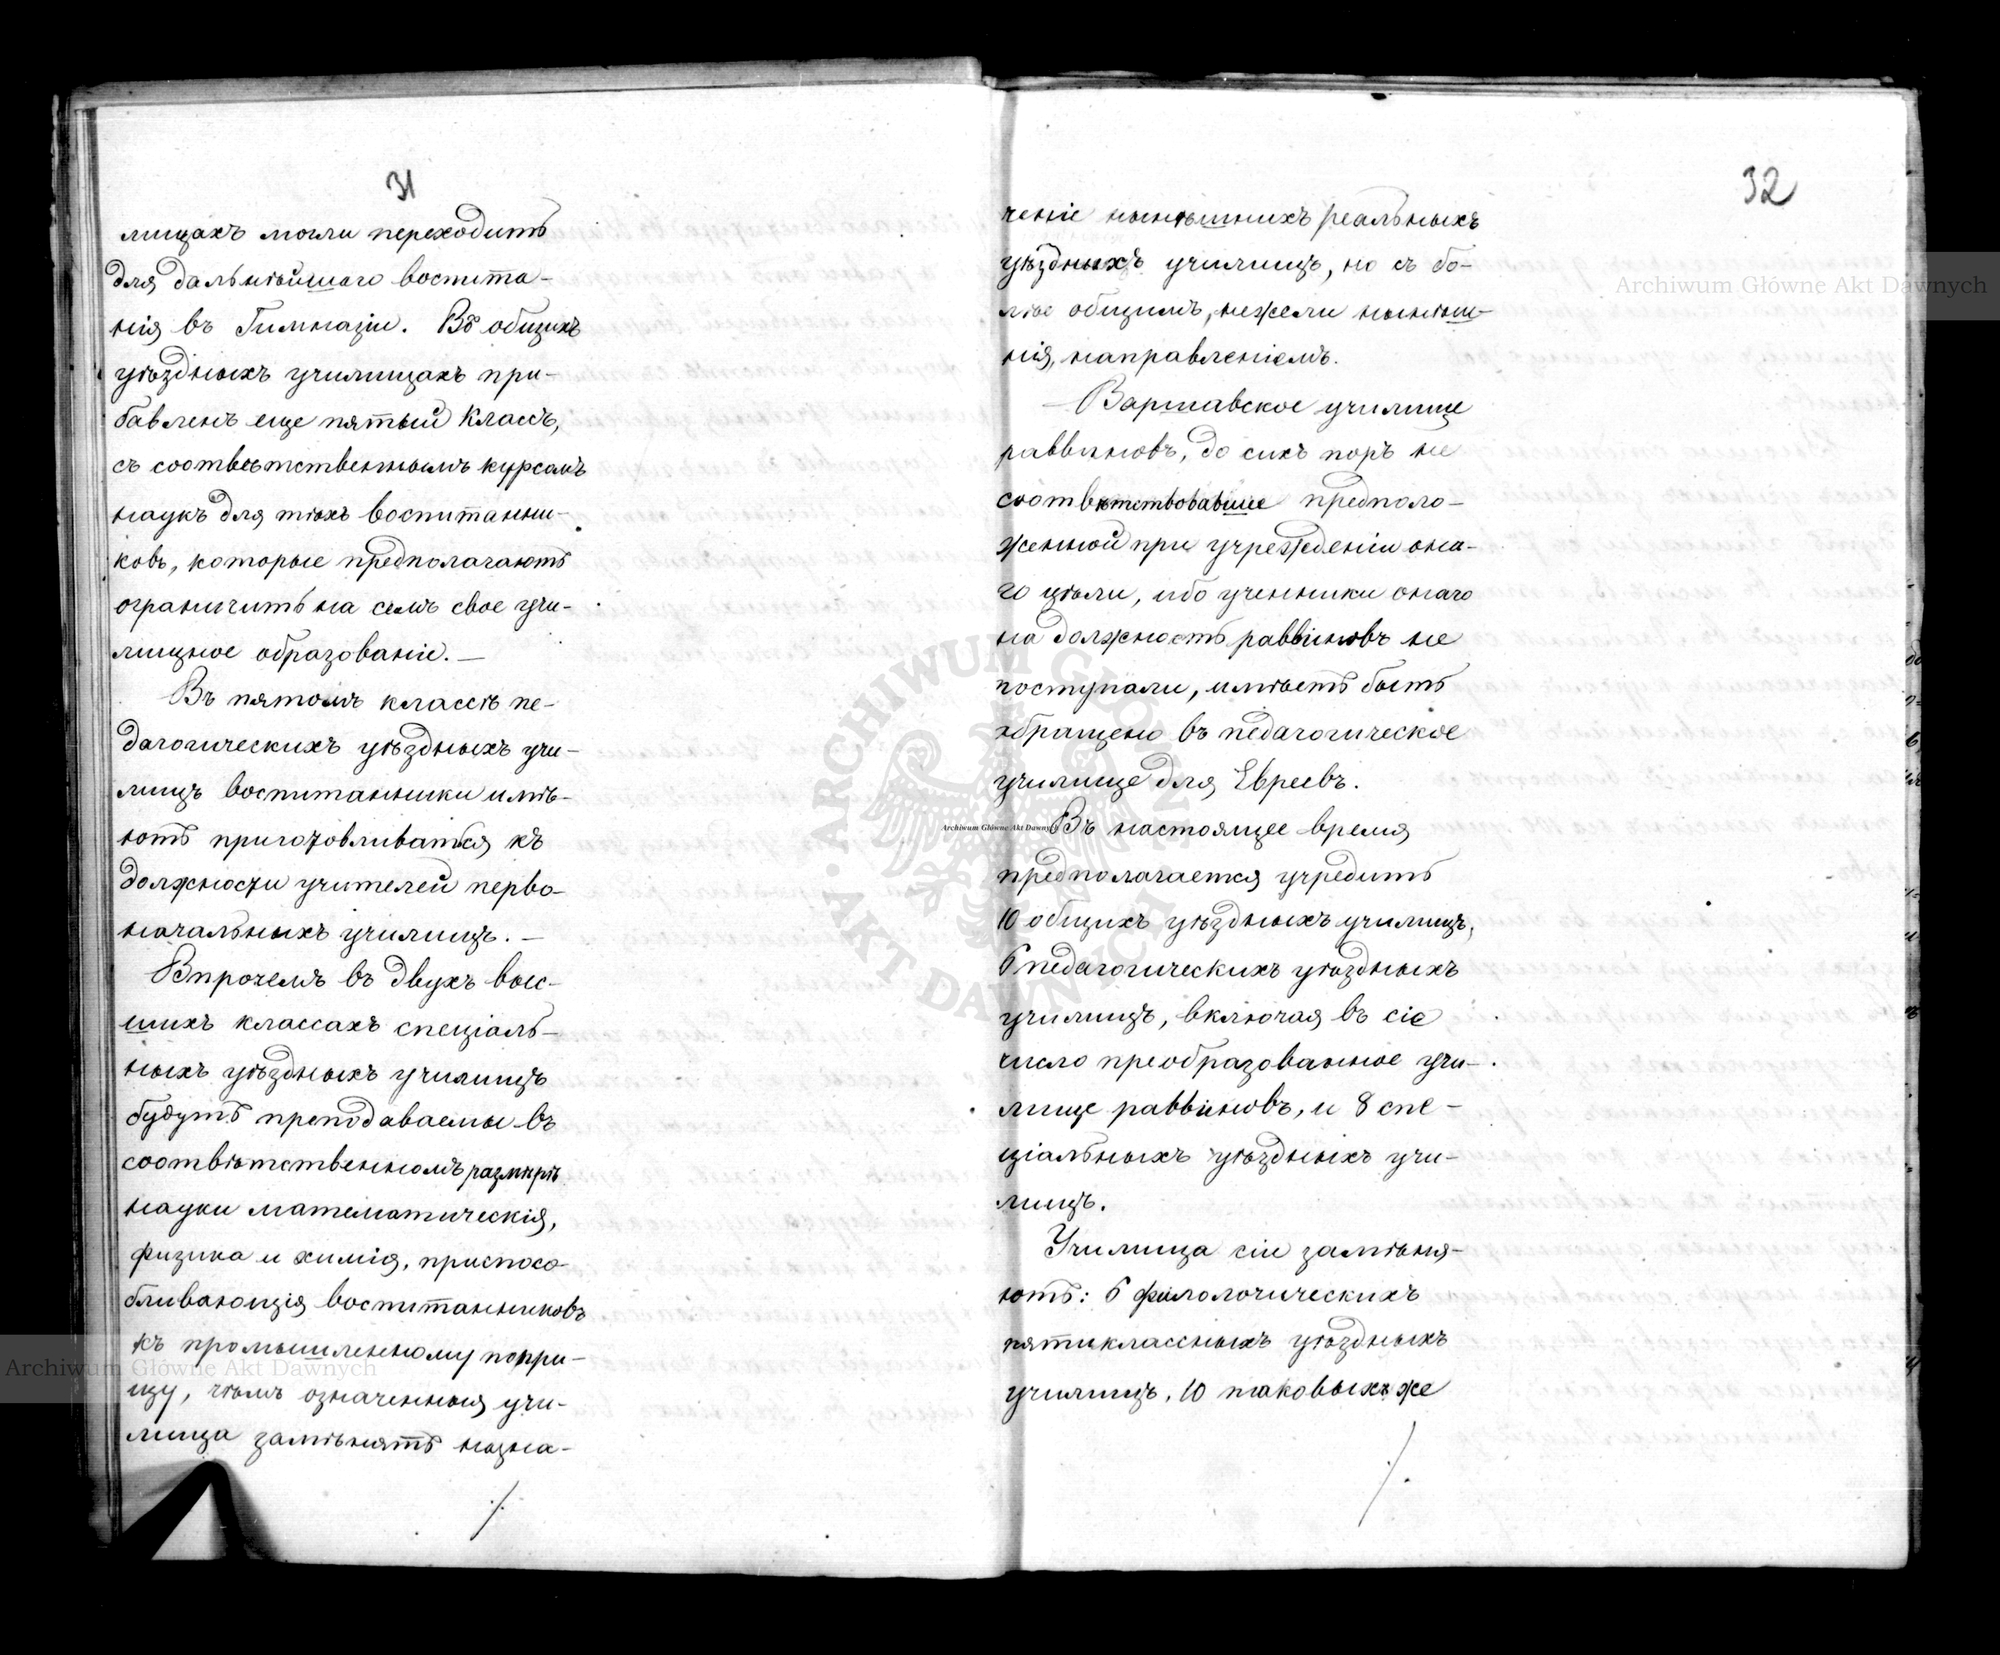 31
лищахъ могли переходить
для дальнѣйшаго воспита-
нія въ Гимназіи. Въ общихъ
уѣздныхъ училищахъ при-
бавленъ еще пятый классъ,
съ соотвѣтственнымъ курсомъ
наукъ для тѣхъ воспитанни-
ковъ, которые предполагаютъ
ограничить на семъ свое учи-
лищное образованіе. —
Въ пятомъ классѣ пе-
дагогическихъ уѣздныхъ учи-
лищъ воспитанники имѣ-
ютъ приготовливаться къ
должности учителей перво-
начальныхъ училищъ. —
Впрочемъ въ двухъ выс-
шихъ классахъ спеціаль-
ныхъ уѣздныхъ училищъ
будутъ преподаваемы въ
соотвѣтственномъ размѣрѣ
науки математическія,
физика и химія, приспосо-
бливающія воспитанниковъ
къ промышленному попри-
щу, чѣмъ означенныя учи-
лища замѣнятъ назна-
/.
32
ченіе нынѣшнихъ реальныхъ
уѣздныхъ училищъ, но съ бо-
лѣе общимъ, нежели нынѣш-
нія, направленіемъ.
— Варшавское училище
раввиновъ, до сихъ поръ не
соотвѣтствовавшее предполо-
женной при учрежденіи она-
го цѣли, ибо ученники онаго
на должность раввиновъ не
поступали, имѣетъ быть
обращено въ педагогическое
училище для Евреевъ.
Въ настоящее время
предполагается учредить
10 общихъ уѣздныхъ училищъ,
6 педагогическихъ уѣздныхъ
училищъ, включая въ сіе
число преобразованное учи-
лище раввиновъ, и 8 спе-
ціальныхъ уѣздныхъ учи-
лищъ.
Училища сіи замѣня-
ютъ: 6 филологическихъ
пятиклассныхъ уѣздныхъ
училищъ, 10 таковыхъ же
/.
Archiwum Główne Akt Dawnych
Archiwum Główne Akt Dawnych
Archiwum Główne Akt Dawnych
ARCHIWUM GŁÓWNE · AKT DAWNYCH ·